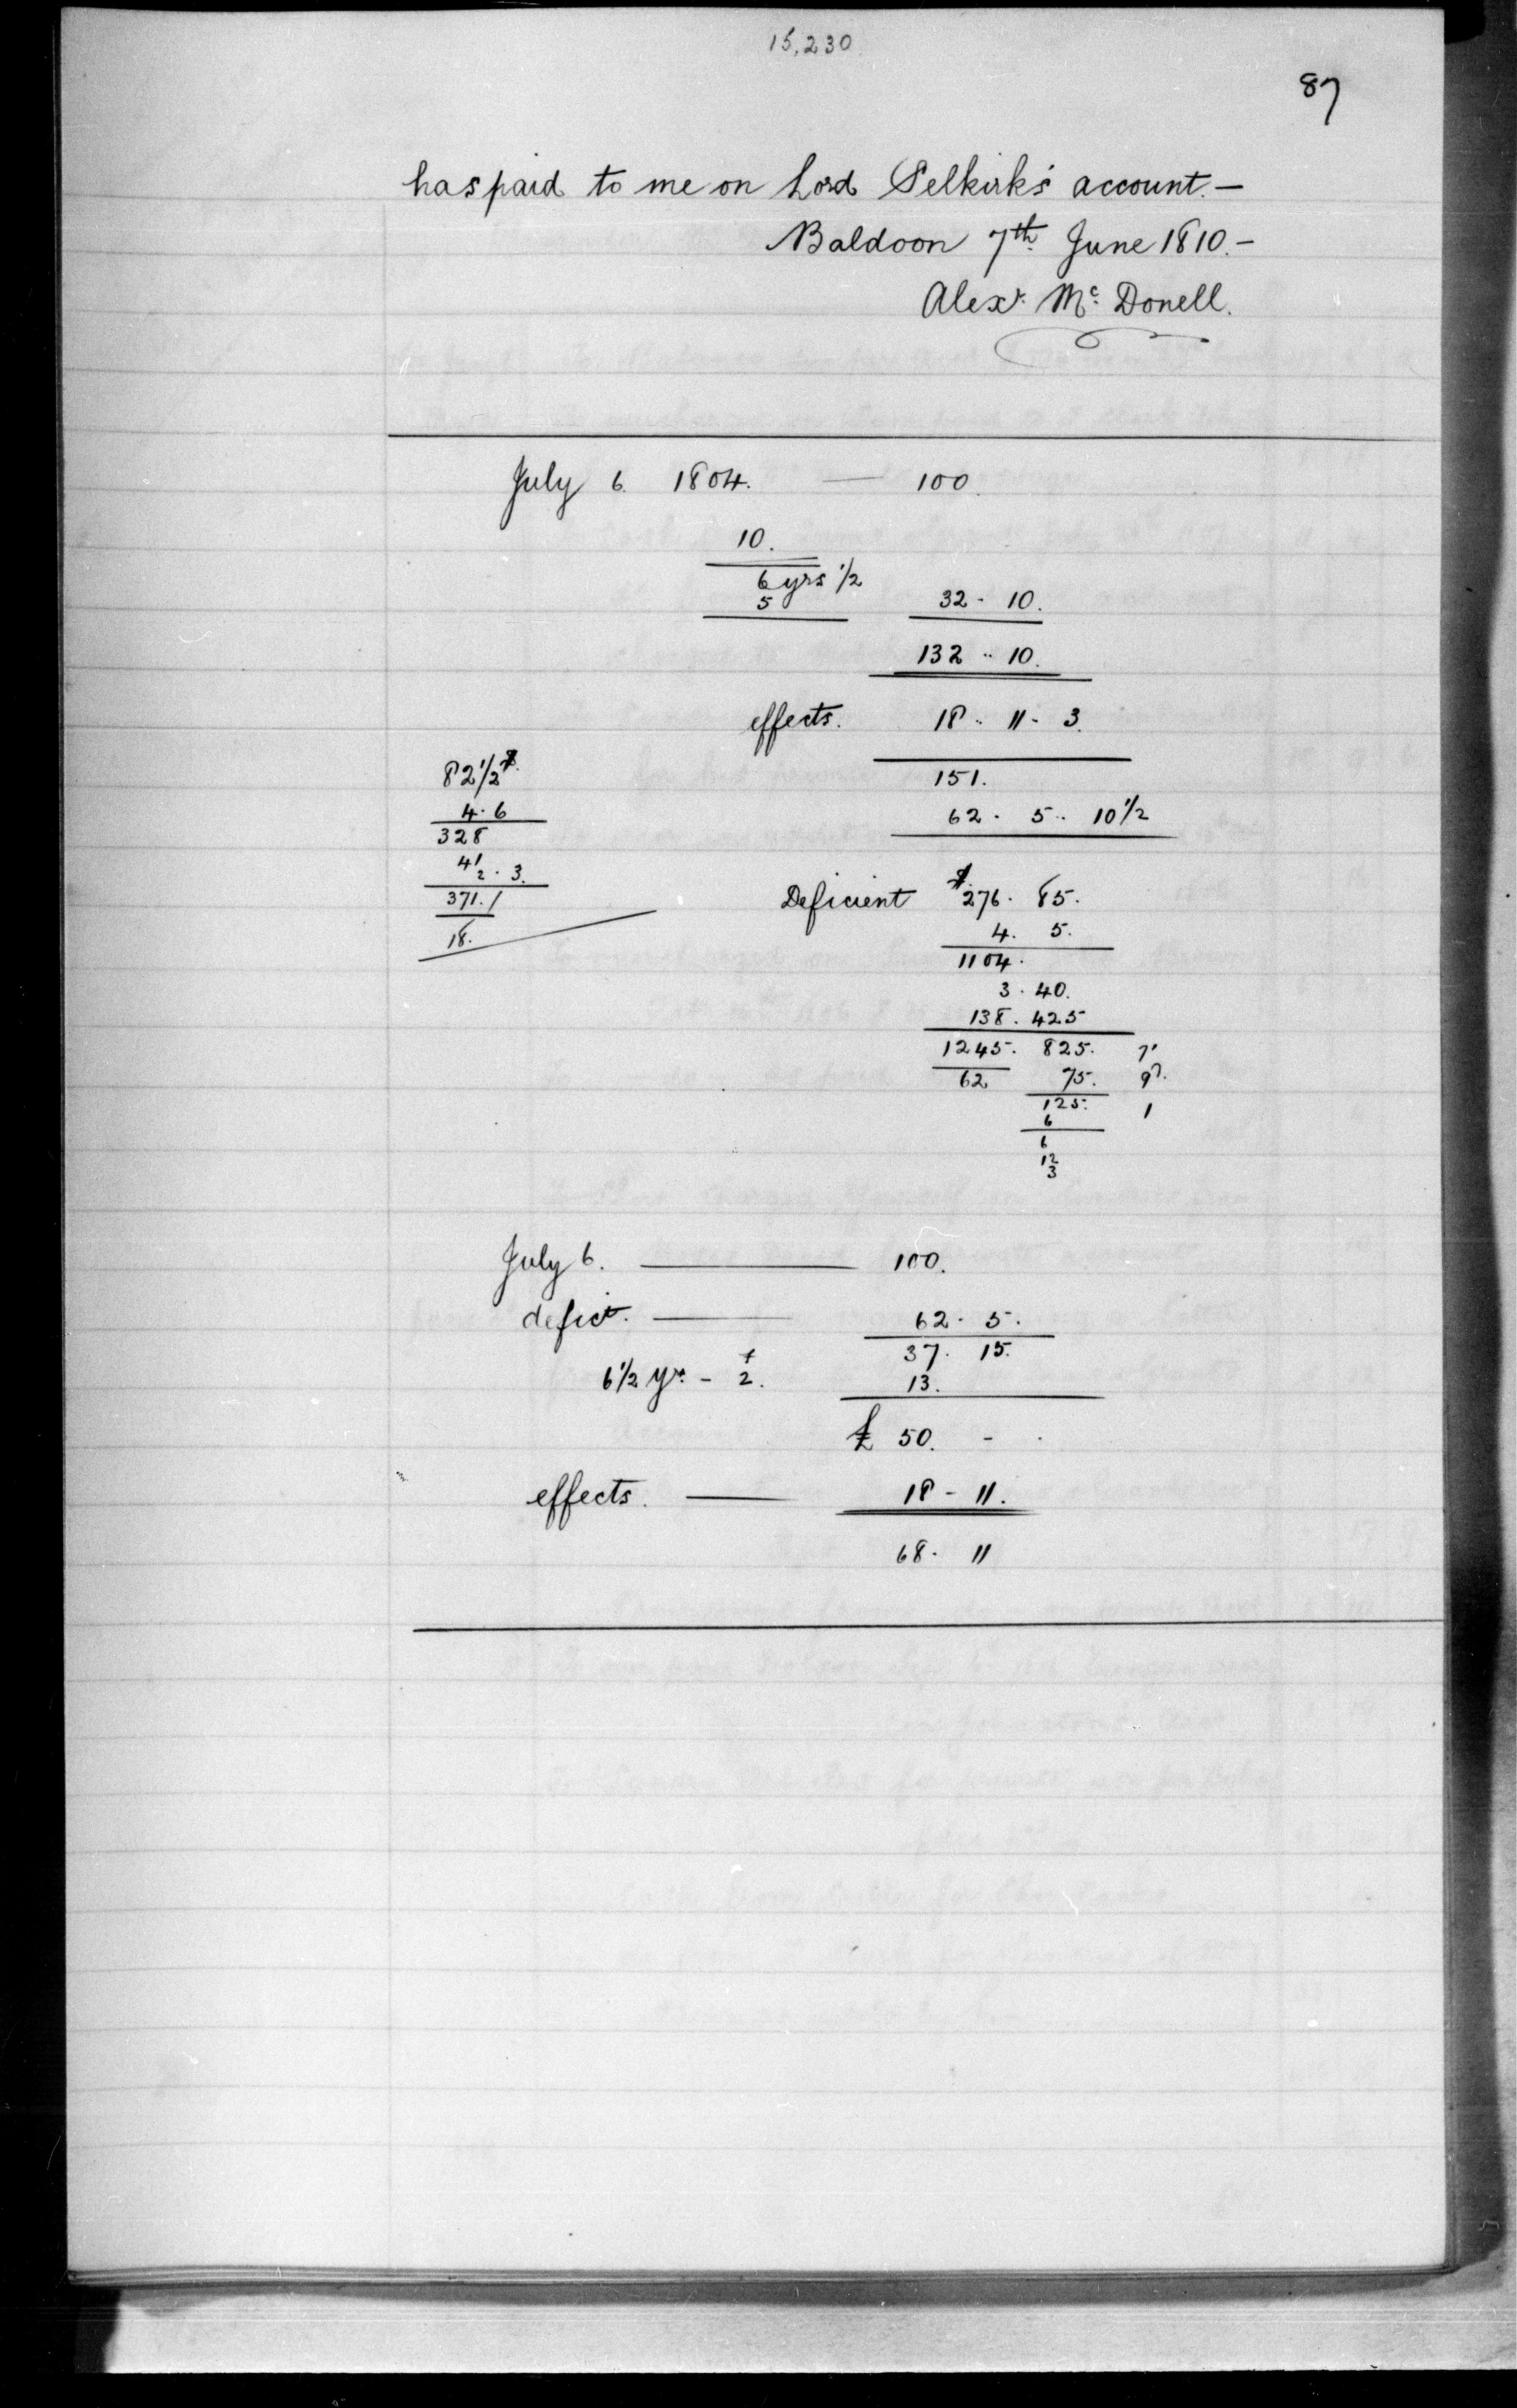 15,230
87
has paid to me on Lord Selkirk's account. —
Baldoon 7th June 1810. —
Alexr. Mc. Donell.
July 6. 1804. — 100.
10.
6 yrs 1/2
5 32 - 10.
132 .. 10.
effects. 18 .. 11 - 3.
151.
62 . 5 .. 10 1/2
82 1/2 $.
4 . 6
328
41
2 . 3.
371. /
18.
Deficient $ 276 . 85.
4. 5.
1104.
3 . 40.
138 . 425
1245. 825. 7'
62 75. 9d.
125. 1
6
6
12
3
July 6. — 100.
defict. — 62 . 5.
37. 15.
6 1/2 yrs. - 2. 13.
£ 50. - .
effects. — 18 - 11.
68 . 11